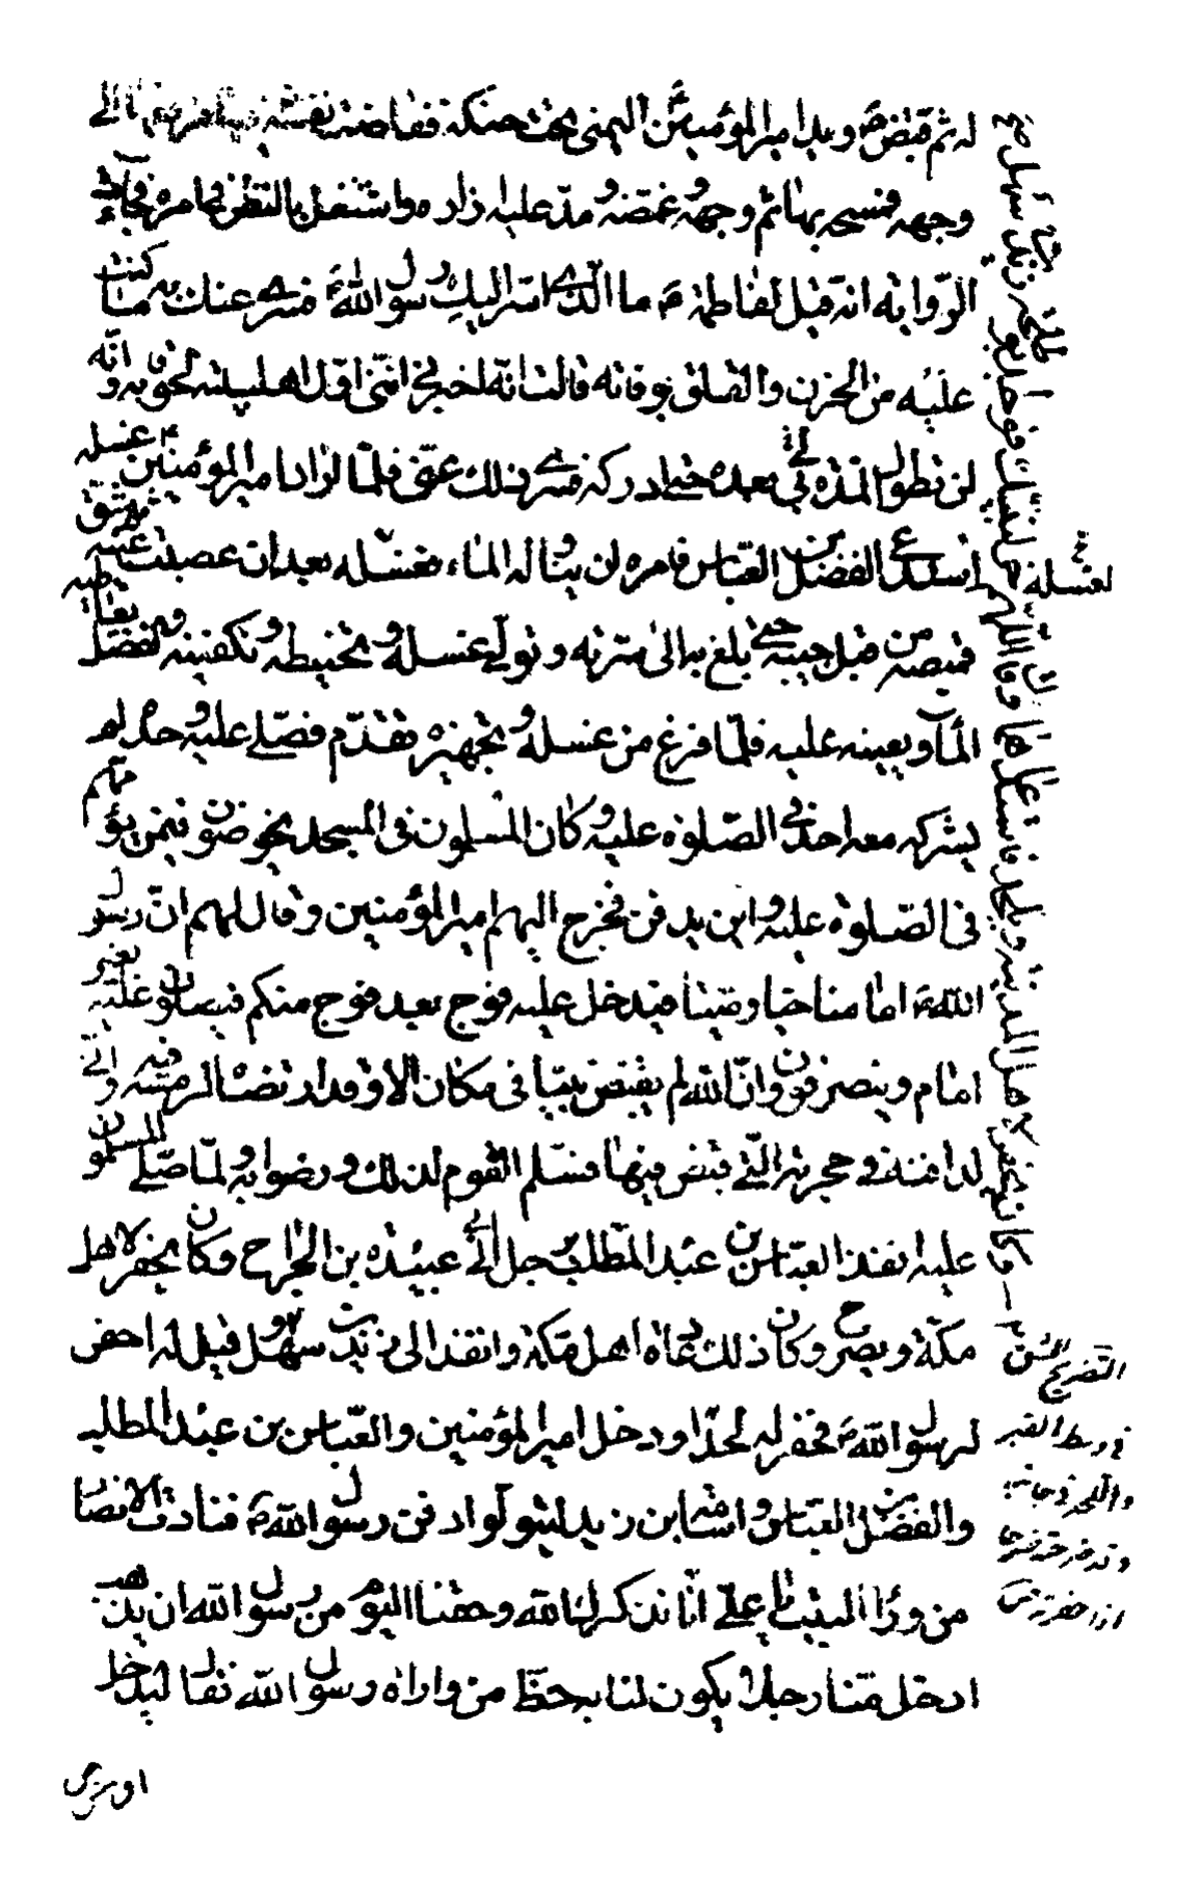 له ثم قبض ص ويد امير المؤمنين اليمنى تحت حنكه ففاضت نفسه فيها فرفعها الى
وجهه فمسحه بها ثم وجهه وغمضه ومدّ عليه ازاره واشتغل بالنظر في امره فجاءت
الرواية انه قيل لفاطمة ع ما الذي اسرّ اليك رسول الله ص فسرى عنك به ما كنت
عليه من الحزن والقلق بوفاته قالت انه اخبرني انني اول اهل بيته لحوقا به وانه
لن تطول المدة لي بعده حتى ادركه فسرى ذلك عنّي فلمّا اراد امير المؤمنين ع غسله
استدعى الفضل بن العباس فامره ان يناوله الماء لغسله فغسّله بعد ان عصب عينيه ثم شق
قميصه من قبل جيبه حتى بلغ به الى سرّته وتولّى غسله وتحنيطه وتكفينه والفضل يعاطيه
الماء ويعينه عليه فلمّا فرغ من غسله وتجهيزه تقدّم فصلّى عليه وحده لم
يشركه معه احد في الصلوة عليه وكان المسلمون في المسجد يخوضون فيمن يؤمّهم
في الصلوة عليه واين يدفن فخرج اليهم امير المؤمنين وقال لهم انّ رسول
الله ص امامنا حيا وميتا فيدخل عليه فوج بعد فوج منكم فيصلون عليه بغير
امام وينصرفون وانّ الله لم يقبض نبيّا في مكان الا وقد ارتضاه لرمسه فيه واني
لدافنه في حجرته التي قبض فيها فسلّم القوم لذلك ورضوا به ولمّا صلّى المسلمون
عليه انفذ العباس بن عبد المطلب برجل الى ابي عبيدة بن الجراح وكان يحفر لاهل
مكّة ويضرح وكان ذلك عادة اهل مكّة وانفذ الى زيد بن سهل وقيل له احفر
لرسول الله ص فحفر له لحدًا ودخل امير المؤمنين والعباس بن عبد المطلب
والفضل بن العباس واسامة بن زيد ليتولّوا دفن رسول الله ص فنادت الانصار
من وراء البيت يا علي انّا نذكرك الله وحقنا اليوم من رسول الله ان يذهب
ادخل منّا رجلا يكون لنا به حظّ من مواراة رسول الله فقال ليدخل
اوس بن
لغسله
التضريح الشق
في وسط القبر
واللحد في جانبه